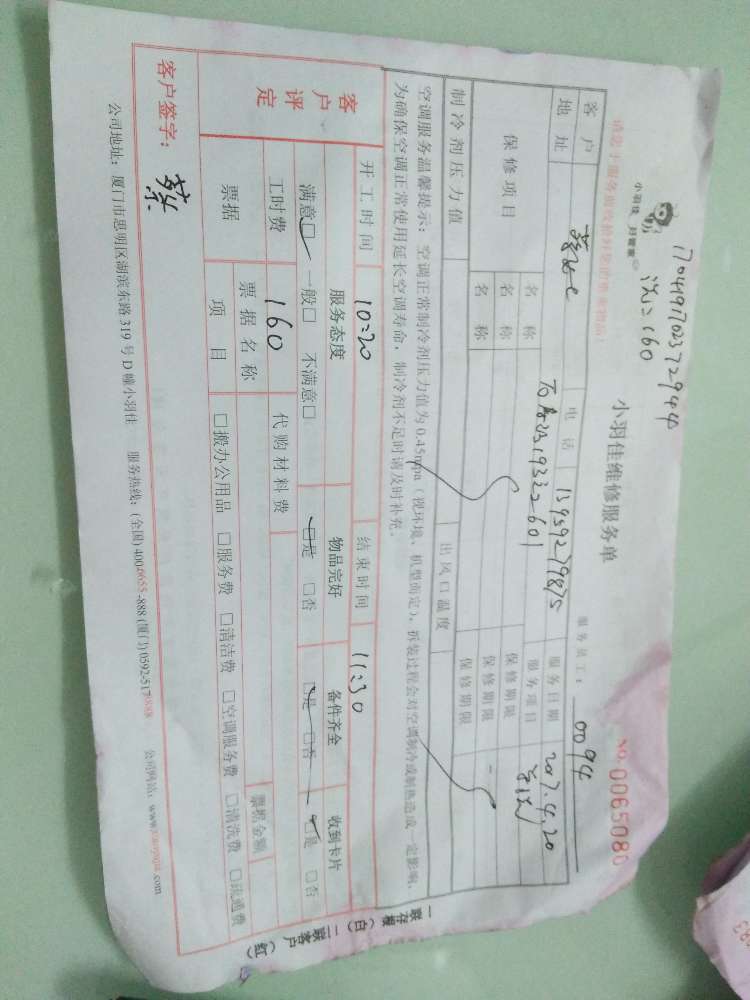 170419702372944
160
小羽佳 好管家
请您于服务前收拾好您的贵重物品!
小羽佳维修服务单
NO. 0065080
服务员工: 0094
客户 电话 13959279875 服务日期 2017.4.20
地址 服务项目
保修项目 名称 保修期限
名称 保修期限
名称 保修期限
制冷剂压力值 出风口温度
空调服务温馨提示: 空调正常制冷剂压力值为 0.45mpa (视环境、机型而定), 拆装过程会对空调制冷或制热造成一定影响,
为确保空调正常使用延长空调寿命, 制冷剂不足时请及时补充。
开工时间 10:20 结束时间 11:30
客户评定 服务态度 物品完好 备件齐全 收到卡片
满意□ 一般□ 不满意□ □是 □否 □是 □否 □是 □否
工时费 160 代购材料费
票据 票据名称 票据金额
项目 □搬办公用品 □服务费 □清洁费 □空调服务费 □清洗费 □疏通费
客户签字: 蔡
公司地址: 厦门市思明区湖滨东路 319 号 D 幢小羽佳 服务热线: (全国) 400-6655-888 (厦门) 0592-5171888 公司网站: www.xiaoyujia.com
一联存根 (白) 二联客户 (红)